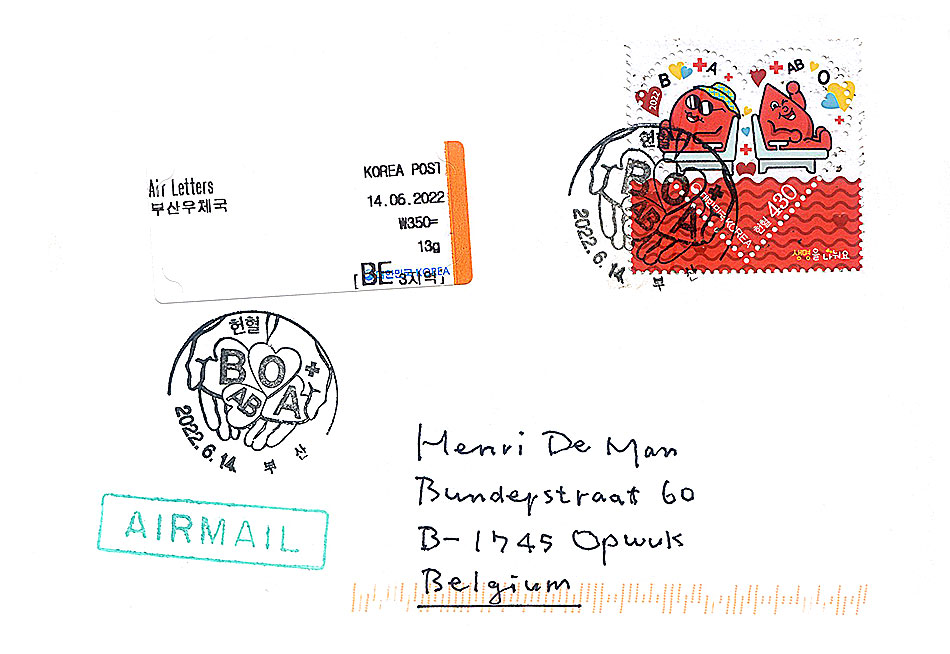 B A
AB O
2022
대한민국 KOREA
헌혈 430
생명을 나눠요
헌혈
B O
AB A
2022.6.14.
부산
KOREA POST
Air Letters
부산우체국
14.06.2022
₩350=
13g
[ BE 3지역]
대한민국 KOREA
헌혈
B O
AB A
2022.6.14.
부산
AIRMAIL
Henri De Man
Bunderstraat 60
B-1745 Opwuk
Belgium